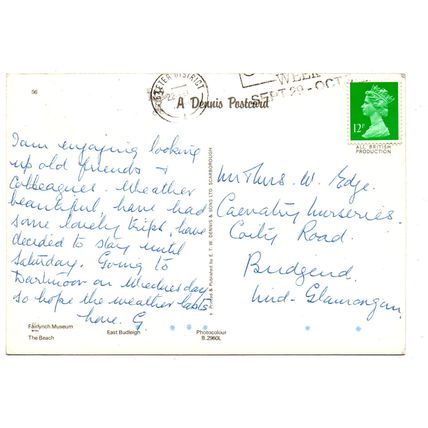 56
EXETER DISTRICT
WEEK
SEPT 29 - OCT
A Dennis Postcard
12P
ALL BRITISH
PRODUCTION
I am enjoying looking
up old friends +
Colleagues. Weather
beautiful, have had
some lovely trips, have
decided to stay until
Saturday. Going to
Dartmoor on Wednesday
so hope the weather lasts
love. G.
Printed & Published by E. T. W. DENNIS & SONS LTD. SCARBOROUGH
Mr & Mrs. W. Edge.
Caenatry Nurseries.
Coity Road.
Bridgend.
Mid-Glamorgan
Fairlynch Museum
East Budleigh
Photocolour
The Beach
B.2960L